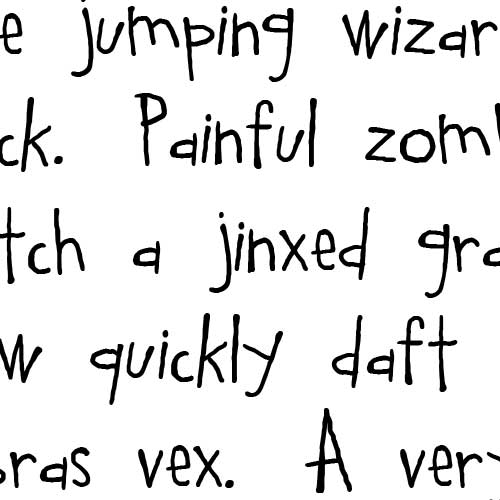 e jumping wizar
ck. Painful zom
tch a jinxed gra
w quickly daft
bras vex. A very